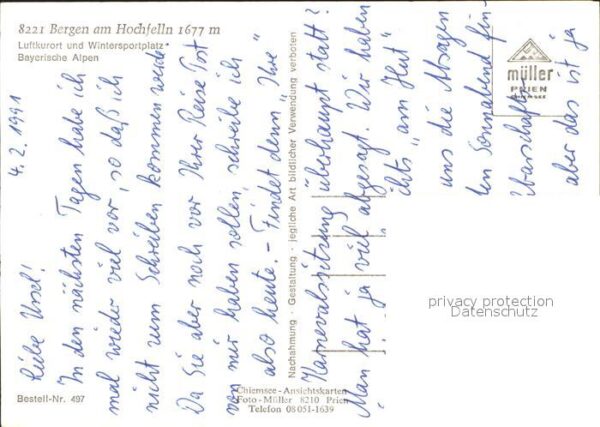 8221 Bergen am Hochfelln 1677 m
Luftkurort und Wintersportplatz
Bayerische Alpen
4. 2. 1991
Liebe Ursel!
In den nächsten Tagen habe ich
mal wieder viel vor, so daß ich
nicht zum Schreiben kommen werde.
Da Sie aber noch vor Ihrer Reise Post
von mir haben sollen, schreibe ich
also heute. - Findet denn „Ihre"
Karnevalssitzung überhaupt statt?
Man hat ja viel abgesagt. Wir haben
ichts „am Hut"
uns die Absagen
ten Sonnabend fin-
barschafts
aber das ist ja
Nachahmung · Gestaltung · jegliche Art bildlicher Verwendung verboten
müller
PRIEN
CHIEMSEE
privacy protection
Datenschutz
Bestell-Nr. 497
Chiemsee-Ansichtskarten
Foto-Müller 8210 Prien
Telefon 08051-1639